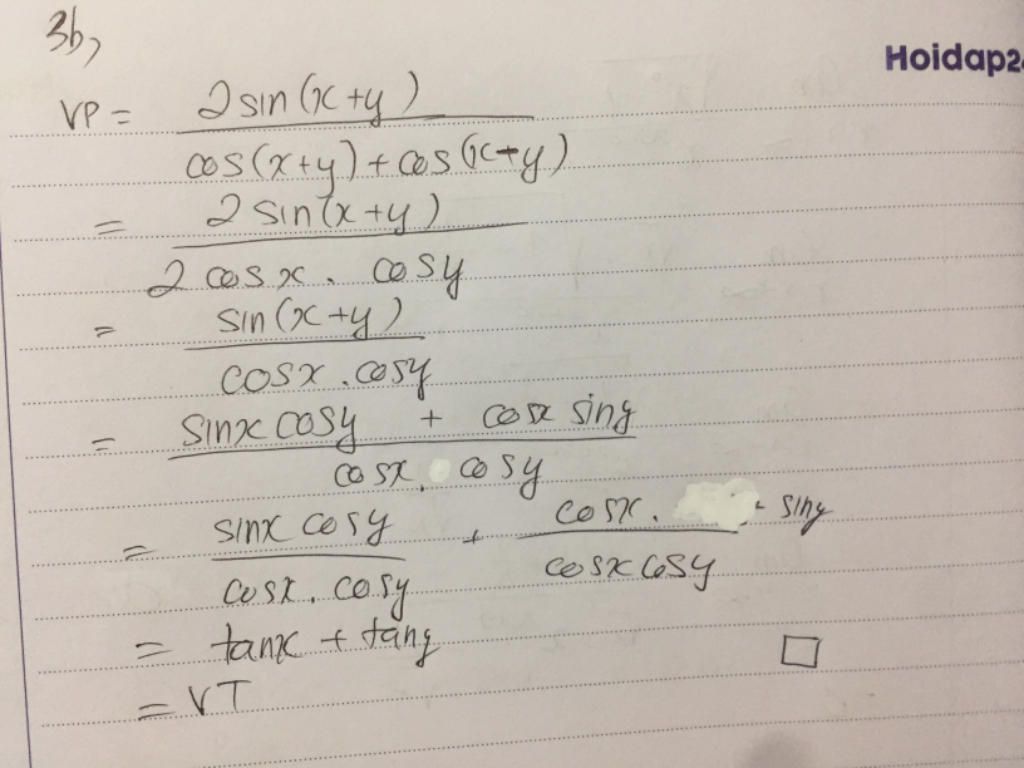 3b,
Hoidap2
VP = 2 sin (x+y) / cos(x+y) + cos(x+y)
= 2 sin(x+y) / 2 cosx . cosy
= sin (x+y) / cosx . cosy
= sinx cosy + cosx siny / cosx . cosy
= sinx cosy / cosx . cosy + cosx . siny / cosx cosy
= tanx + tany
= VT